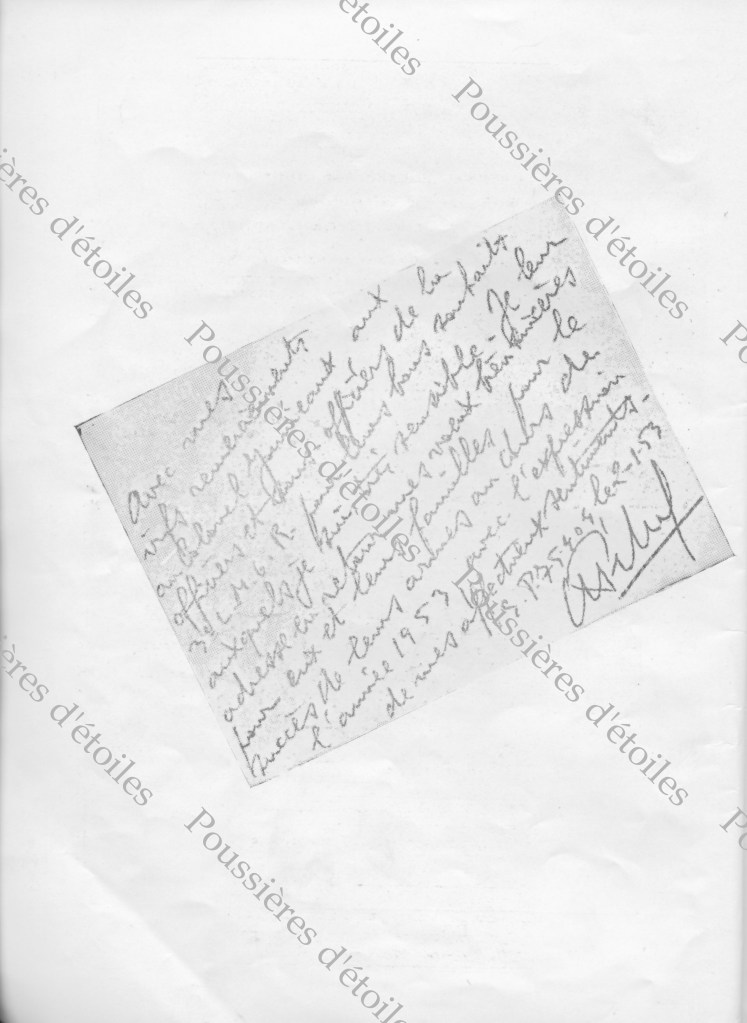 Avec mes
vifs remerciements
au Colonel aux
officiers et sous officiers de la
pour leurs bons souhaits
auxquels je suis très sensible. Je leur
adresse en retour mes vœux bien sincères
pour eux et leurs familles pour le
succès de leurs armes au cours de
l'année 1953 avec l'expression
de mes affectueux sentiments.
le 2-1-53
étoiles
Poussières d'étoiles
ières d'étoiles
Poussières d'étoiles
Poussières d'étoiles
ières d'étoiles
Poussières d'étoiles